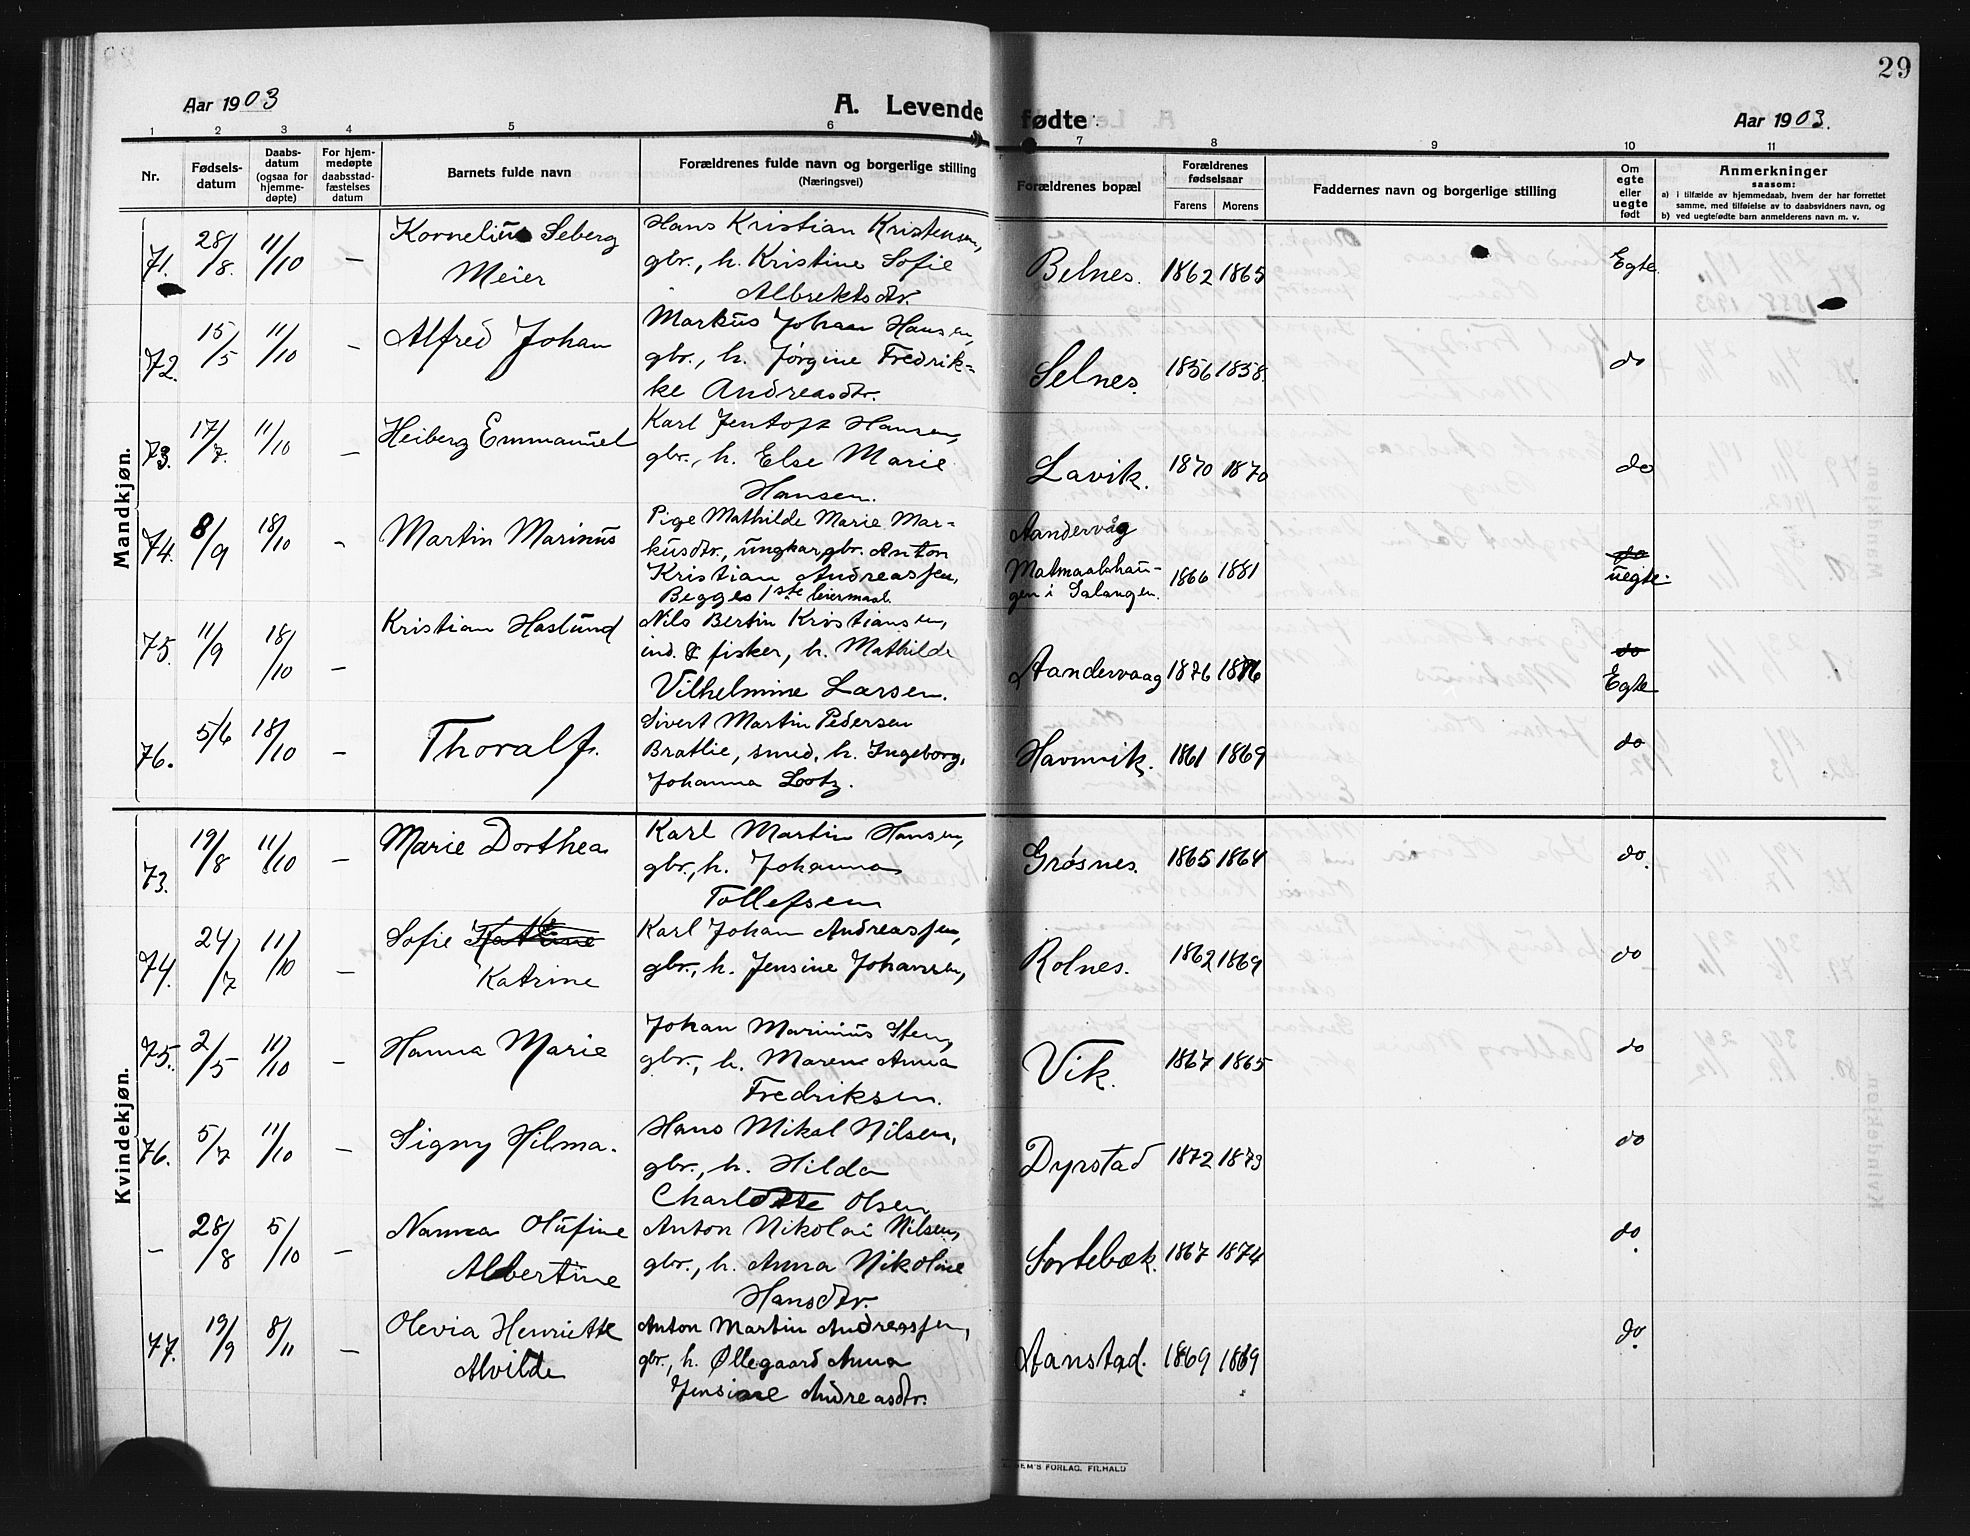 29
Aar 1903
A. Levende fødte
Aar 1903.
1 2 3 4 5 6 7 8 9 10 11
Nr.
Fødsels-
datum
Daabs-
datum
(ogsaa for
hjemme-
døpte)
For hjem-
medøpte
daabsstad-
fæstelses
datum
Barnets fulde navn
Forældrenes fulde navn og borgerlige stilling
(Næringsvei)
Forældrenes bopæl
Forældrenes
fødselsaar
Farens Morens
Faddernes navn og borgerlige stilling
Om
egte
eller
uegte
født
Anmerkninger
saasom:
a) i tilfælde av hjemmedaab, hvem der har forrettet
samme, med tilføielse av to daabsvidners navn, og
b) ved uegtefødte barn anmelderens navn m. v.
Mandkjøn.
71. 28/8. 11/10 — Kornelius Seberg
Meier
Hans Kristian Kristensen,
gbr., h. Kristine Sofie
Albrektsdtr.
Belnes. 1862 1865 Egte.
72. 15/5 11/10 — Alfred Johan
Markus Johan Hansen,
gbr., h. Jørgine Fredrik-
ke Andreasdtr.
Selnes. 1856 1858. do
73. 17/7. 11/10 — Heiberg Emmanuel
Karl Jentoft Hansen,
gbr., h. Else Marie
Hansen.
Lavik. 1870 1870 do
74. 8/9 18/10 — Martin Marinus
Pige Mathilde Marie Mar-
kusdtr., ungkar gbr. Anton
Kristian Andreassen,
Begges 1ste leiermaal.
Aandervåg
Matmaalshau-
gen i Salangen.
1866 1881
do
uegte.
75. 11/9 18/10 — Kristian Haslund
Nils Bertin Kristiansen,
ind. & fisker, h. Mathilde
Vilhelmine Larsen.
Aandervaag 1876 1876
do
Egte
76. 5/6 18/10 — Thoralf.
Sivert Martin Pedersen
Bratlie, smed, h. Ingeborg,
Johanna Lootz.
Havnvik. 1861 1869 do
Kvindekjøn.
73. 19/8 11/10 — Marie Dorthea
Karl Martin Hansen,
gbr., h. Johanna
Tollefsen
Grøsnes. 1865 1864 do.
74. 24/7 11/10 — Sofie Katrine
Katrine
Karl Johan Andreassen,
gbr., h. Jensine Johansen,
Rolnes. 1862 1869 do
75. 2/5 11/10 — Hanna Marie
Johan Marinius Sten,
gbr., h. Maren Anna
Fredriksen.
Vik. 1867 1865 do
76. 5/7 11/10 — Signy Hilma.
Hans Mikal Nilsen,
gbr., h. Hilda
Charlotte Olsen
Dyrstad 1872 1873 do
— 28/8 5/10 — Nanna Olufine
Albertine
Anton Nikolai Nilsen,
gbr., h. Anna Nikoline
Hansdtr.
Sortebæk. 1867 1874 do.
77. 19/9 8/11 — Olevia Henriette
Alvilde
Anton Martin Andreassen,
gbr., h. Øllegaard Anna
Jensine Andreasdtr.
Aanstad. 1869 1869 do.
SEM'S FORLAG. FR.HALD